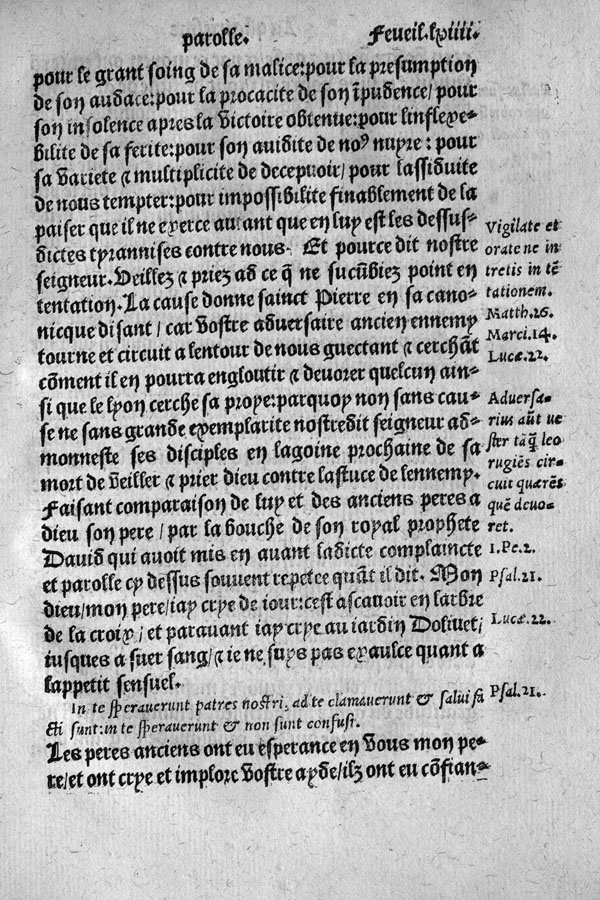 parolle. Feueil.lxiiii.
pour le grant soing de sa malice:pour la presumption
de son audace:pour la procacite de son ĩpudence/ pour
son insolence apres la victoire obtenue:pour linflexe-
bilite de sa ferite:pour son auidite de noꝰ nuyre : pour
sa variete ⁊ multiplicite de deceptuoir/ pour lassiduite
de nous tempter:pour impossibilite finablement de la
paiser que il ne exerce autant que en luy est les dessus-
dictes tyrannises contre nous. Et pource dit nostre
seigneur. Veillez ⁊ priez ad ce q̃ ne sucũbiez point en
tentation. La cause donne sainct Pierre en sa cano-
nicque disant/ car vostre aduersaire ancien ennemy
tourne et circuit a lentour de nous guectant ⁊ cerchãt
cõment il en pourra engloutir ⁊ deuorer quelcun ain-
si que le lyon cerche sa proye: parquoy non sans cau-
se ne sans grande exemplarite nostredit seigneur ad-
monneste ses disciples en lagoine prochaine de sa
mort de veiller ⁊ prier dieu contre lastuce de lennemy.
Faisant comparaison de luy et des anciens peres a
dieu son pere/ par la bouche de son royal prophete
Dauid qui auoit mis en auant ladicte complaincte
et parolle cy dessus souuent repetee quãt il dit. Mon
dieu/mon pere/iay crye de iour:cest ascauoir en larbre
de la croix/ et parauant iay crye au iardin Doliuet/
iusques a suer sang/ ⁊ ie ne suys pas exaulce quant a
lappetit sensuel.
In te sperauerunt patres nostri, ad te clamauerunt & salui fa
cti sunt:in te sperauerunt & non sunt confusi.
Les peres anciens ont eu esperance en vous mon pe-
re/et ont crye et implore vostre ayde/ilz ont eu cõfian-
Vigilate et
orate ne in
tretis in tẽ
tationem.
Matth.26.
Marci.14.
Lucæ.22.
Aduersa-
rius aũt ue
ster tãq̃ leo
rugiẽs cir-
cuit quærẽs
quẽ deuo-
ret.
1.Pe.2.
Psal.21.
Lucæ.22.
Psal.21.